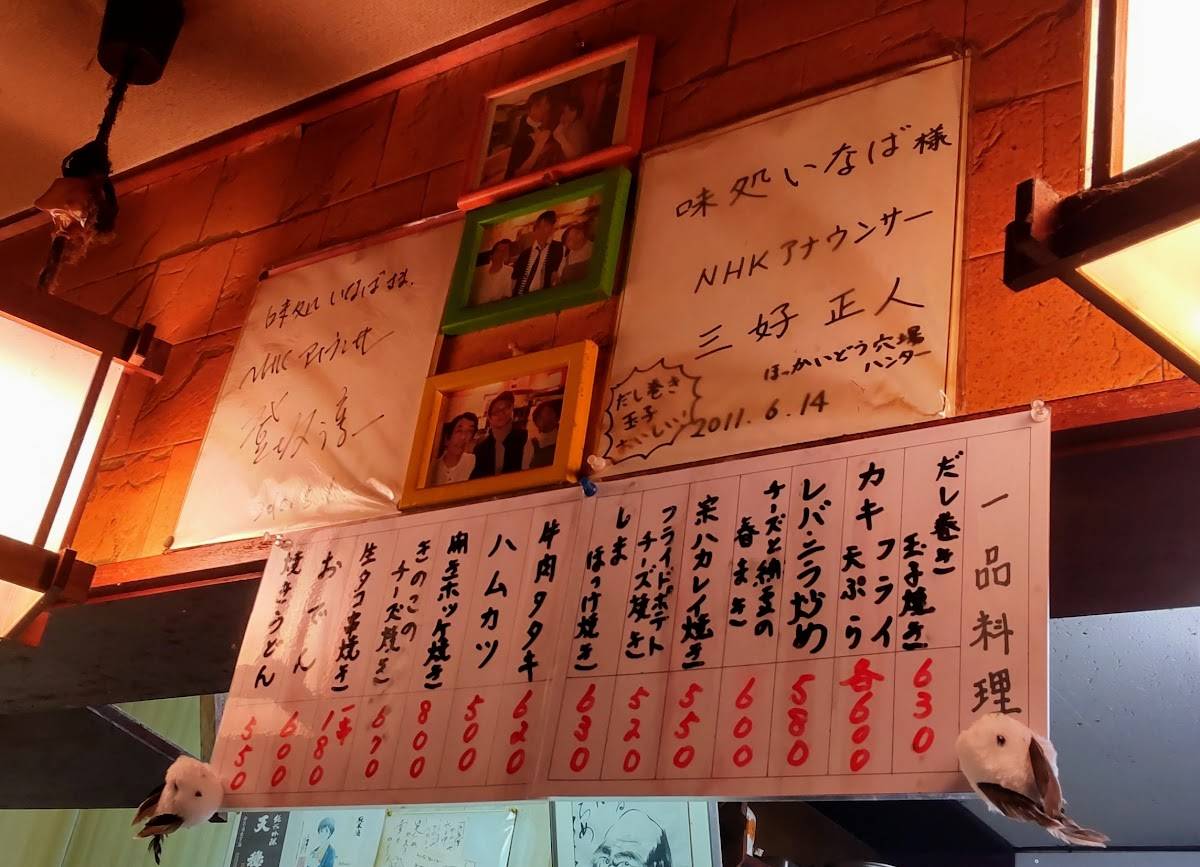 味処いなば様
NHKアナウンサー
三好 正人
ほっかいどう穴場
ハンター
だし巻き
玉子
おいしい!
2011.6.14
味処 いなばさま
NHK アナウンサー
一品料理
だし巻き
玉子焼き 630
カキ フライ
天ぷら 各600
レバ・ニラ炒め 580
チーズと納豆の
春まき 600
宗ハカレイ焼き 550
フライドポテト
チーズ焼き 520
しま
ほっけ焼き 630
牛肉タタキ 620
ハムカツ 500
開きホッケ焼き 800
きのこの
チーズ焼き 670
生タコ串焼き 一本180
おでん 600
焼きうどん 550
純米吟醸
天穏
純米酒